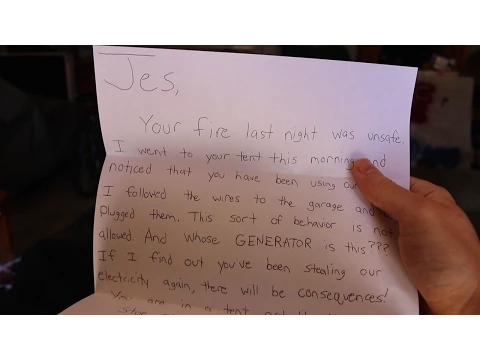 Jes,
Your fire last night was unsafe.
I went to your tent this morning and
noticed that you have been using our
I followed the wires to the garage and
plugged them. This sort of behavior is not
allowed. And whose GENERATOR is this???
If I find out you've been stealing our
electricity again, there will be consequences!
You are in a tent